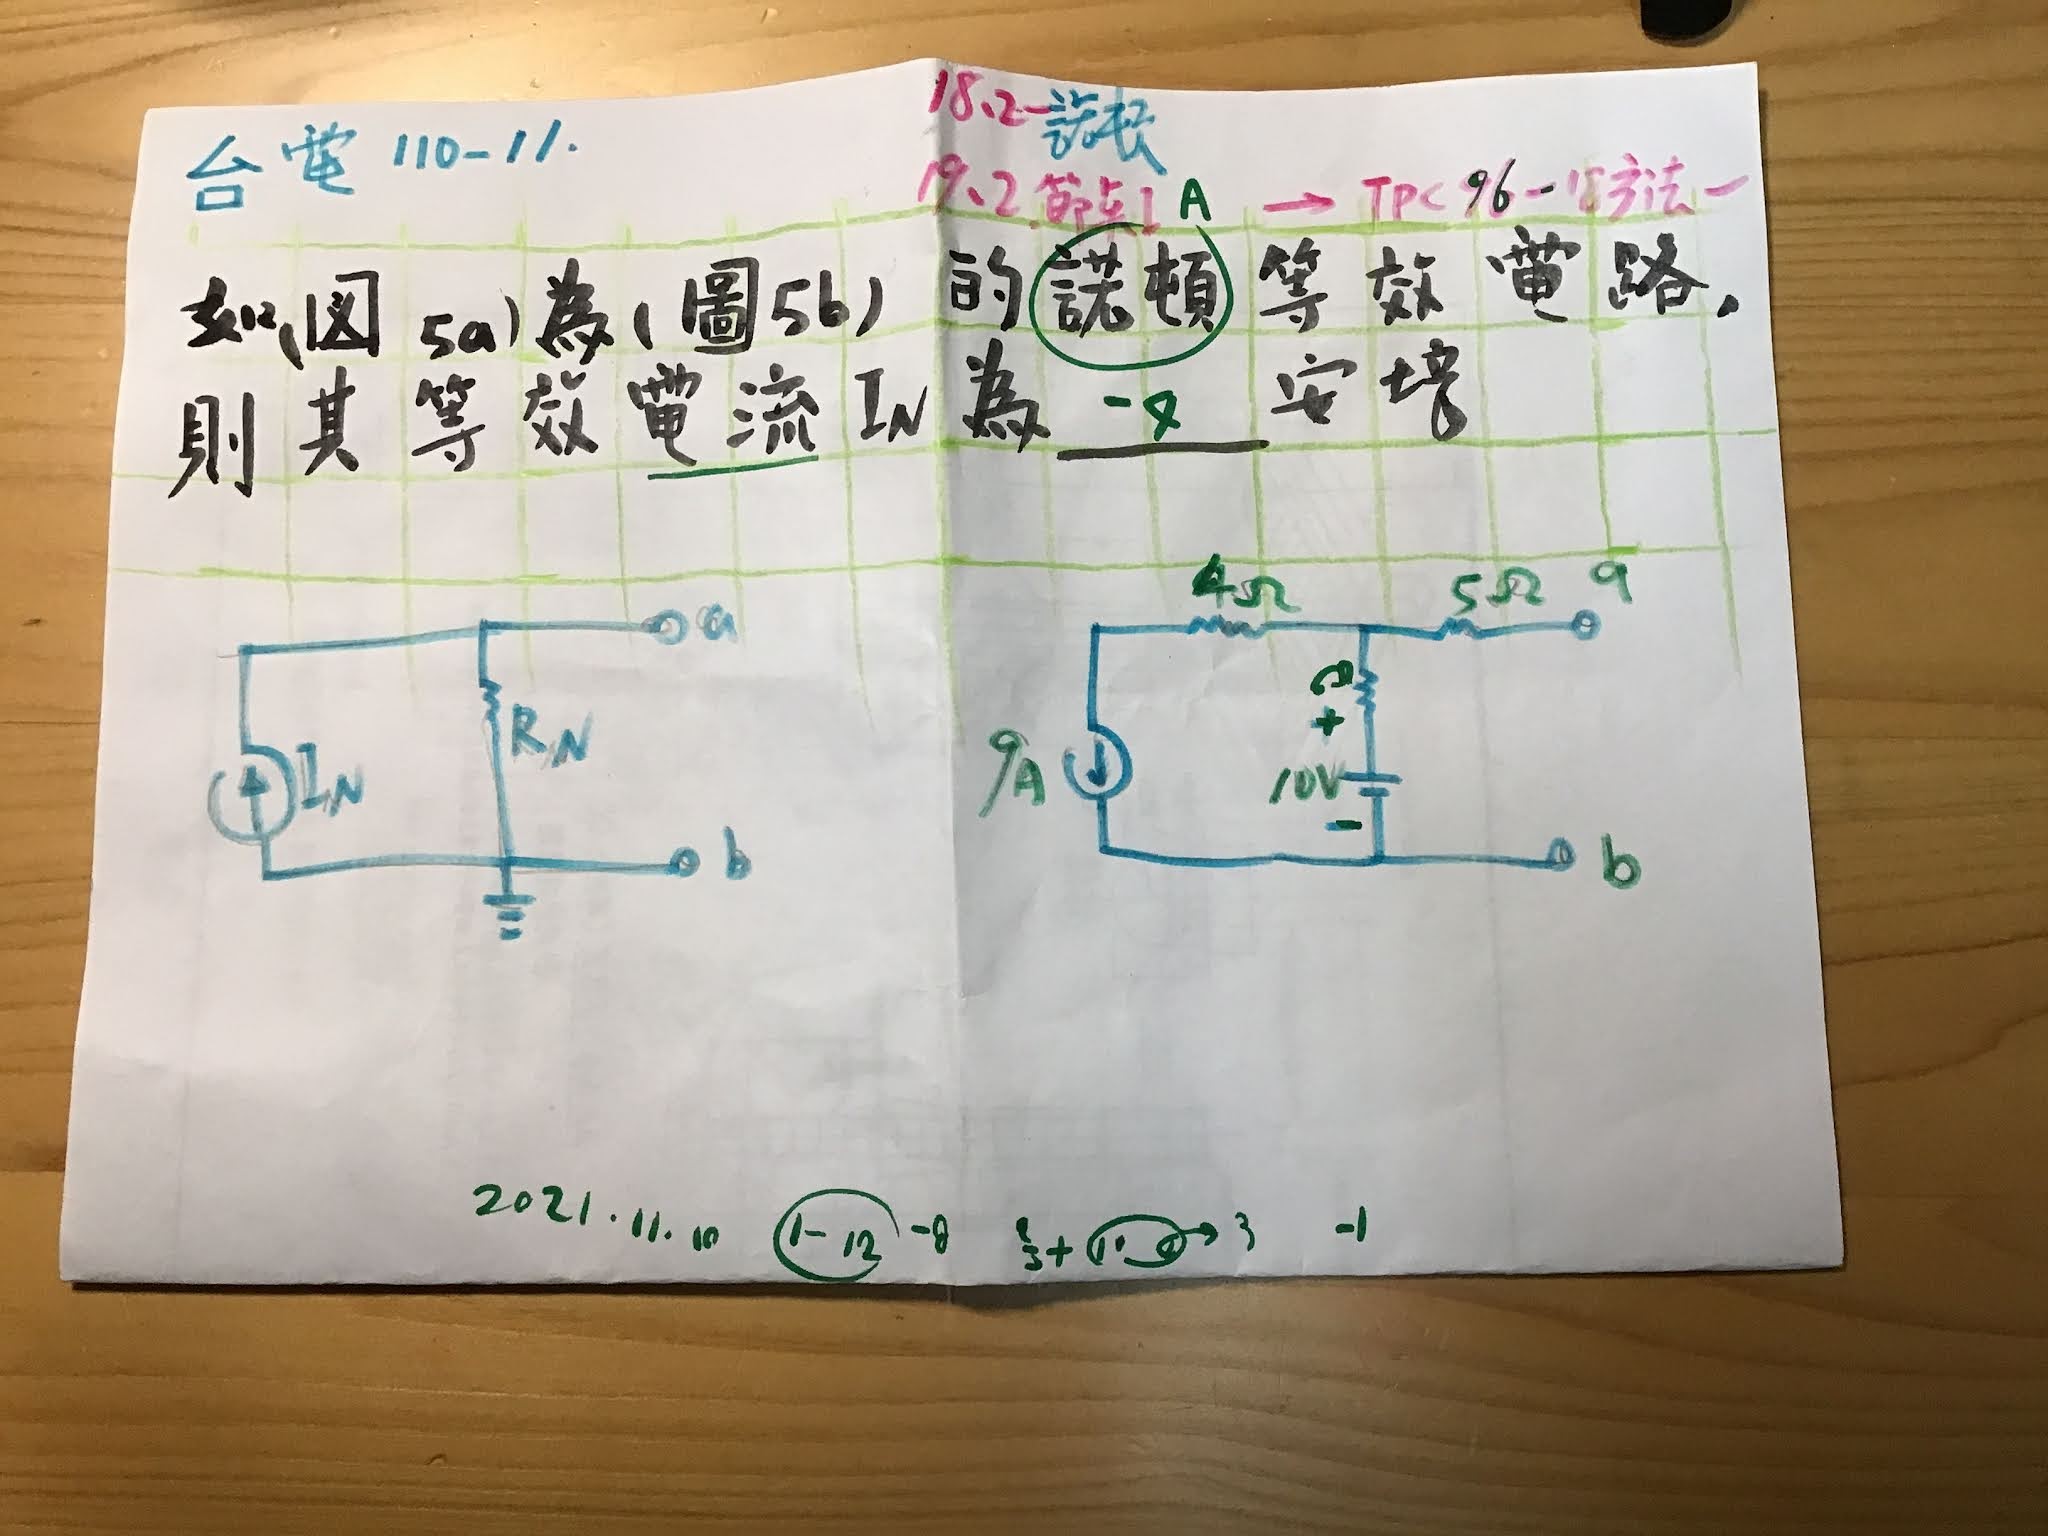 台電 110-11.
18.2-諾頓
19.2 節點 I A → TPC 96-18方法一
如(図5a)為(圖5b)的諾頓等效電路,
則其等效電流IN為 -8 安培
4Ω 5Ω a
a
RN
IN
+
9A
10V
-
b
b
2021.11.10 1-12 -8 → 3 -1